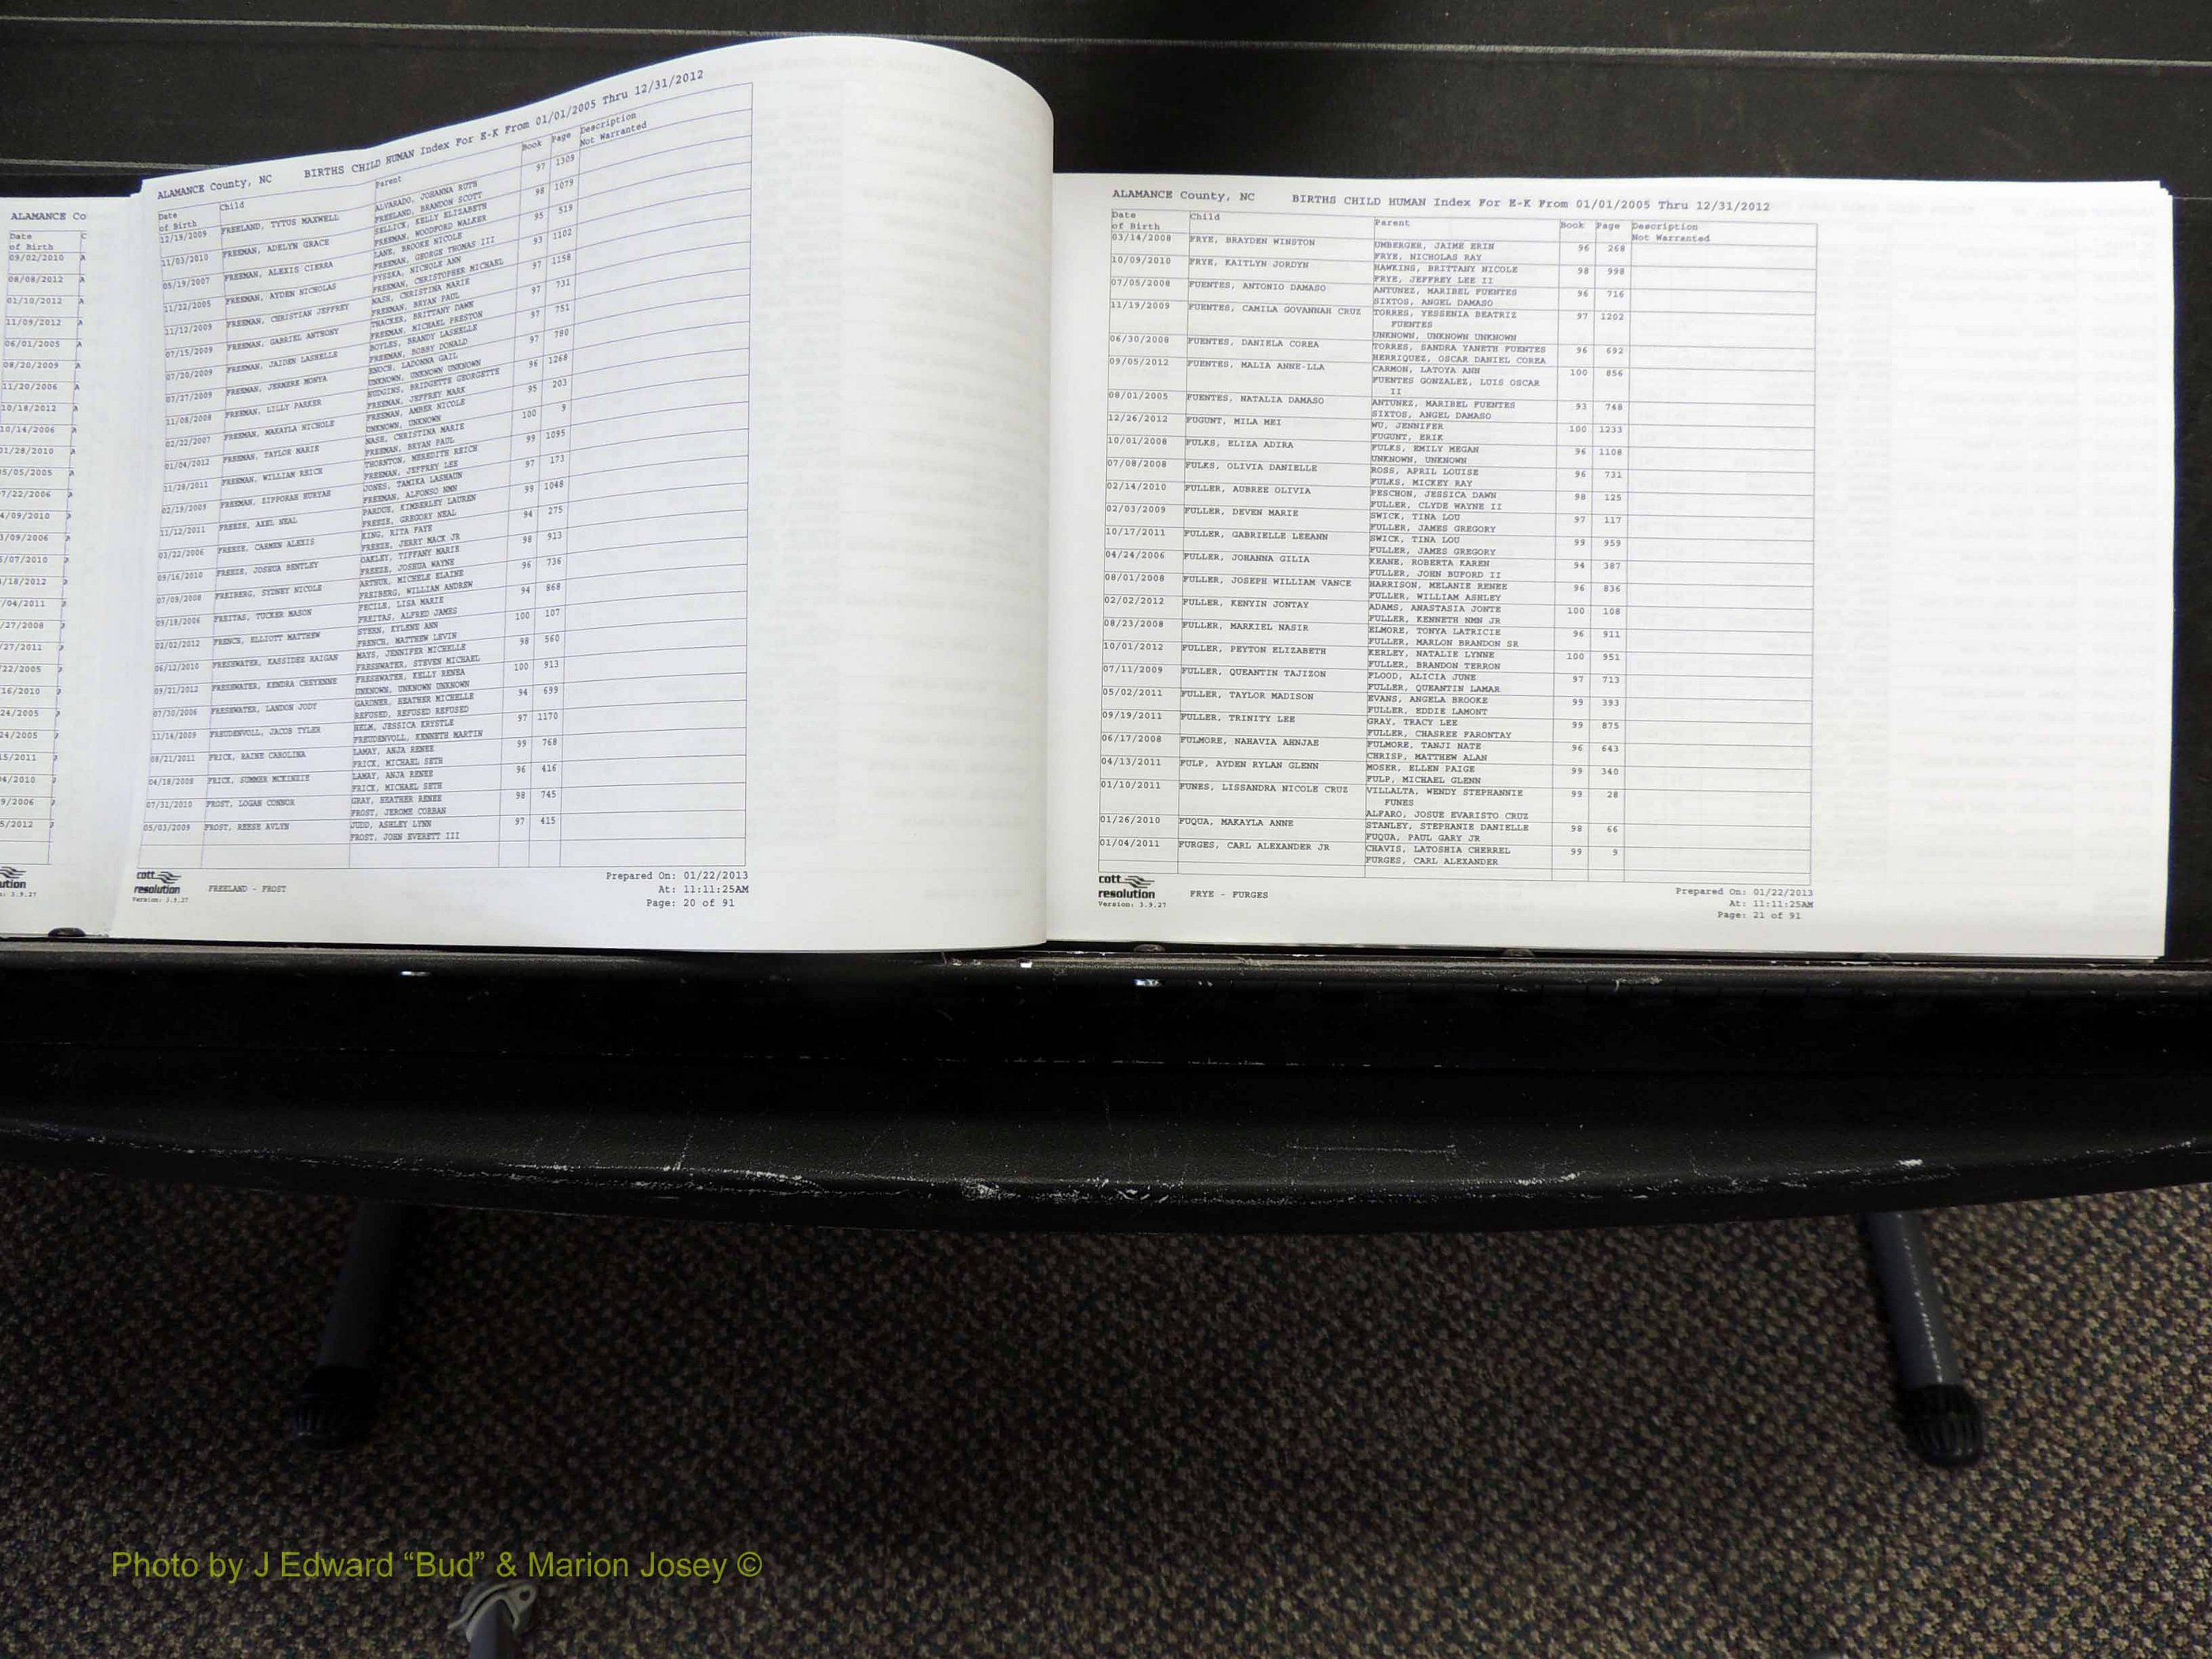 ALAMANCE Co
Date
of Birth
09/02/2010
08/08/2012
01/10/2012
11/09/2012
06/01/2005
08/20/2009
11/20/2006
10/18/2012
10/14/2006
ALAMANCE County, NC BIRTHS CHILD HUMAN Index For E-K From 01/01/2005 Thru 12/31/2012
Date of Birth Child Parent Book Page Description Not Warranted
12/19/2009 FREELAND, TYTUS MAXWELL ALVARADO, JOHANNA RUTH 97 1309
FREELAND, BRANDON SCOTT
11/03/2010 FREEMAN, ADELYN GRACE SELLICK, KELLY ELIZABETH 98 1079
FREEMAN, WOODFORD WALKER
05/19/2007 FREEMAN, ALEXIS CIERRA LANE, BROOKE NICOLE 95 519
FREEMAN, GEORGE THOMAS III
11/22/2005 FREEMAN, AYDEN NICHOLAS PYSZKA, NICHOLE ANN 93 1102
FREEMAN, CHRISTOPHER MICHAEL
11/12/2009 FREEMAN, CHRISTIAN JEFFREY NASH, CHRISTINA MARIE 97 1158
FREEMAN, BRYAN PAUL
07/15/2009 FREEMAN, GABRIEL ANTHONY THACKER, BRITTANY DAWN 97 731
FREEMAN, MICHAEL PRESTON
07/20/2009 FREEMAN, JAIDEN LASHELLE BOYLES, BRANDY LASHELLE 97 751
FREEMAN, BOBBY DONALD
07/27/2009 FREEMAN, JERMERE MONYA ENOCH, LADONNA GAIL 97 780
UNKNOWN, UNKNOWN UNKNOWN
11/08/2008 FREEMAN, LILLY PARKER HUDGINS, BRIDGETTE GEORGETTE 96 1268
FREEMAN, JEFFREY MARK
02/22/2007 FREEMAN, MAKAYLA NICHOLE FREEMAN, AMBER NICOLE 95 203
UNKNOWN, UNKNOWN
01/04/2012 FREEMAN, TAYLOR MARIE NASH, CHRISTINA MARIE 100 9
FREEMAN, BRYAN PAUL
11/28/2011 FREEMAN, WILLIAM REICH THORNTON, MEREDITH REICH 99 1095
FREEMAN, JEFFREY LEE
02/19/2009 FREEMAN, ZIPPORAH JONES, TAMIKA LASHAUN 97 173
FREEMAN, ALFONSO NMN
11/12/2011 FREEZE, AXEL NEAL PARDUE, KIMBERLEY LAUREN 99 1048
FREEZE, GREGORY NEAL
03/22/2006 FREEZE, CARMEN ALEXIS KING, RITA FAYE 94 275
FREEZE, JERRY MACK JR
09/16/2010 FREEZE, JOSHUA BENTLEY OAKLEY, TIFFANY MARIE 98 913
FREEZE, JOSHUA WAYNE
07/09/2008 FREIBERG, SYDNEY NICOLE ARTHUR, MICHELE ELAINE 96 736
FREIBERG, WILLIAM ANDREW
09/18/2006 FREITAS, TUCKER MASON FECILE, LISA MARIE 94 868
FREITAS, ALFRED JAMES
02/02/2012 FRENCH, ELLIOTT MATTHEW STERN, KYLENE ANN 100 107
FRENCH, MATTHEW LEVIN
06/12/2010 FRESHWATER, KASSIDEE RAIGAN MAYS, JENNIFER MICHELLE 98 560
FRESHWATER, STEVEN MICHAEL
09/21/2012 FRESHWATER, KENDRA CHEYENNE FRESHWATER, KELLY RENEA 100 913
UNKNOWN, UNKNOWN UNKNOWN
07/30/2006 FRESHWATER, LANDON JODY GARDNER, HEATHER MICHELLE 94 699
REFUSED, REFUSED REFUSED
11/14/2009 FREUDENVOLL, JACOB TYLER HELM, JESSICA KRYSTLE 97 1170
FREUDENVOLL, KENNETH MARTIN
08/21/2011 FRICK, RAINE CAROLINA LAMAY, ANJA RENEE 99 768
FRICK, MICHAEL SETH
04/18/2008 FRICK, SUMMER MCKINZIE LAMAY, ANJA RENEE 96 416
FRICK, MICHAEL SETH
07/31/2010 FROST, LOGAN CONNOR GRAY, HEATHER RENEE 98 745
FROST, JEROME CORBAN
05/03/2009 FROST, REESE AVLYN JUDD, ASHLEY LYNN 97 415
FROST, JOHN EVERETT III
cott
resolution
Version: 3.9.27
FREELAND - FROST
Prepared On: 01/22/2013
At: 11:11:25AM
Page: 20 of 91
ALAMANCE County, NC BIRTHS CHILD HUMAN Index For E-K From 01/01/2005 Thru 12/31/2012
Date of Birth Child Parent Book Page Description Not Warranted
03/14/2008 FRYE, BRAYDEN WINSTON UMBERGER, JAIME ERIN 96 268
FRYE, NICHOLAS RAY
10/09/2010 FRYE, KAITLYN JORDYN HAWKINS, BRITTANY NICOLE 98 998
FRYE, JEFFREY LEE II
07/05/2008 FUENTES, ANTONIO DAMASO ANTUNEZ, MARIBEL FUENTES 96 716
SIXTOS, ANGEL DAMASO
11/19/2009 FUENTES, CAMILA GOVANNAH CRUZ TORRES, YESSENIA BEATRIZ 97 1202
FUENTES
UNKNOWN, UNKNOWN UNKNOWN
06/30/2008 FUENTES, DANIELA COREA TORRES, SANDRA YANETH FUENTES 96 692
HERRIQUEZ, OSCAR DANIEL COREA
09/05/2012 FUENTES, MALIA ANNE-LLA CARMON, LATOYA ANN 100 856
FUENTES GONZALEZ, LUIS OSCAR
II
08/01/2005 FUENTES, NATALIA DAMASO ANTUNEZ, MARIBEL FUENTES 93 748
SIXTOS, ANGEL DAMASO
12/26/2012 FUGUNT, MILA MEI WU, JENNIFER 100 1233
FUGUNT, ERIK
10/01/2008 FULKS, ELIZA ADIRA FULKS, EMILY MEGAN 96 1108
UNKNOWN, UNKNOWN
07/08/2008 FULKS, OLIVIA DANIELLE ROSS, APRIL LOUISE 96 731
FULKS, MICKEY RAY
02/14/2010 FULLER, AUBREE OLIVIA PESCHON, JESSICA DAWN 98 125
FULLER, CLYDE WAYNE II
02/03/2009 FULLER, DEVEN MARIE SWICK, TINA LOU 97 117
FULLER, JAMES GREGORY
10/17/2011 FULLER, GABRIELLE LEEANN SWICK, TINA LOU 99 959
FULLER, JAMES GREGORY
04/24/2006 FULLER, JOHANNA GILIA KEANE, ROBERTA KAREN 94 387
FULLER, JOHN BUFORD II
08/01/2008 FULLER, JOSEPH WILLIAM VANCE HARRISON, MELANIE RENEE 96 836
FULLER, WILLIAM ASHLEY
02/02/2012 FULLER, KENYIN JONTAY ADAMS, ANASTASIA JONTE 100 108
FULLER, KENNETH NMN JR
08/23/2008 FULLER, MARKIEL NASIR ELMORE, TONYA LATRICIE 96 911
FULLER, MARLON BRANDON SR
10/01/2012 FULLER, PEYTON ELIZABETH KERLEY, NATALIE LYNNE 100 951
FULLER, BRANDON TERRON
07/11/2009 FULLER, QUEANTIN TAJIZON FLOOD, ALICIA JUNE 97 713
FULLER, QUEANTIN LAMAR
05/02/2011 FULLER, TAYLOR MADISON EVANS, ANGELA BROOKE 99 393
FULLER, EDDIE LAMONT
09/19/2011 FULLER, TRINITY LEE GRAY, TRACY LEE 99 875
FULLER, CHASREE FARONTAY
06/17/2008 FULMORE, NAHAVIA AHNJAE FULMORE, TANJI NATE 96 643
CHRISP, MATTHEW ALAN
04/13/2011 FULP, AYDEN RYLAN GLENN MOSER, ELLEN PAIGE 99 340
FULP, MICHAEL GLENN
01/10/2011 FUNES, LISSANDRA NICOLE CRUZ VILLALTA, WENDY STEPHANNIE 99 28
FUNES
ALFARO, JOSUE EVARISTO CRUZ
01/26/2010 FUQUA, MAKAYLA ANNE STANLEY, STEPHANIE DANIELLE 98 66
FUQUA, PAUL GARY JR
01/04/2011 FURGES, CARL ALEXANDER JR CHAVIS, LATOSHIA CHERREL 99 9
FURGES, CARL ALEXANDER
cott
resolution
Version: 3.9.27
FRYE - FURGES
Prepared On: 01/22/2013
At: 11:11:25AM
Page: 21 of 91
Photo by J Edward “Bud” & Marion Josey ©